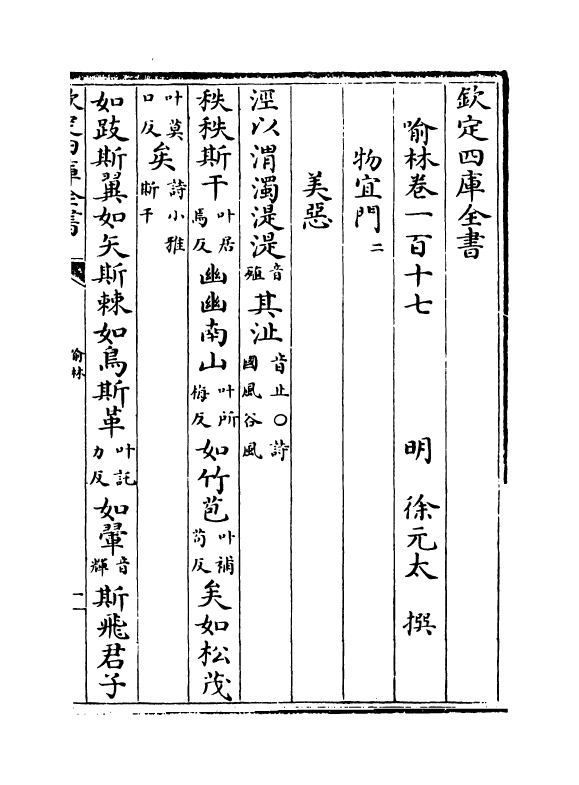 欽定四庫全書
喻林卷一百十七　明　徐元太　撰
物宜門二
美惡
涇以渭濁湜湜音殖其沚音止○詩國風谷風
秩秩斯干叶居焉反幽幽南山叶所旃反如竹苞叶補苟反矣如松茂
叶莫口反矣詩小雅斯干
如跂斯翼如矢斯棘如鳥斯革叶訖力反如翬音輝斯飛君子
欽定四庫全書
喻林
一